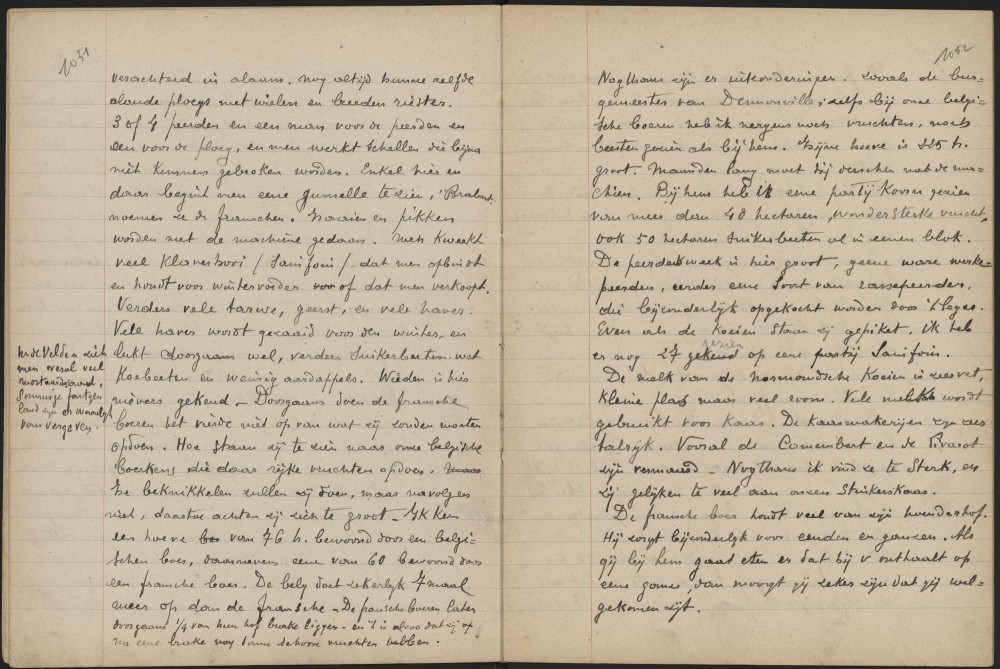 1051
verachterd in alaam. nog altijd hunne zelfde
aloude ploegs met wielen en breeden riester.
3 of 4 peerden en een man voor de peerden en
een voor de ploeg, en men werkt schellen die bijna
niet kunnen gebroken worden. Enkel hier en
daar begint men eene Gumelle te zien, "Brabant
noemen ze de franschen. Zaaien en pikken
worden met de machine gedaan. Men kweekt
veel klaverhooi / Sainfoin / - dat men opbindt
en houdt voor wintervoeder of dat men verkoopt.
Verders vele tarwe, geerst, en vele haver.
Vele haver wordt gezaaid voor den winter, en
lukt doorgaans wel, verders Suikerbeeten wat
Koebeeten en weinig aardappels. Wieden is hier
nievers gekend - Doorgaans doen de fransche
boeren het vierde niet op van wat zij zouden moeten
opdoen. Hoe staan zij te zien naar onze belgische
boerkens die daar rijke vruchten opdoen. maar
Ze beknikkelen zullen zij doen, maar navolgen
niet, daartoe achten zij zich te groot - Ik ken
een hoeve van 76 h. bewoond door een belgi=
schen boer, daarnevens eene van 60 bewoond door
een fransche boer. De belg doet zekerlyk 7 maal
meer op dan de fransche - De fransche boeren laten
doorgaans 1/4 van hun hof brake liggen - en 't is alzoo dat zij op
na eene brake nog soms schoone vruchten hebben.
In de Velden ziet
men overal veel
mostaardzaad,
Sommige partijen
land zijn er waarlijk
van vergeven.
1052
Nogthans zijn er uitzonderingen. zooals de bur-
gemeester van Denonville; zelfs bij onze belgi=
sche boeren heb ik nergens noch vruchten, noch
beesten gezien als bij hem. Zijne hoeve is 225 h.
groot. Maanden lang moet hij derschen met de ma-
chien. Bij hem heb ik eene partij Koren gezien
van meer dan 40 hectaren, wonder sterke vrucht,
ook 50 hectaren Suikerbeeten al in eenen blok.
De peerdekweek is hier groot, geene ware werke-
peerden, eerder eene soort van rassepeerden,
die bijzonderlijk opgekocht worden door 't leger.
Even als de Koeien staan zij gepiket. Ik heb
gezien
er nog 27 gekend op eene partij Sainfoin.
De melk van de normandische Koeien is zeer vet,
kleine plas maar veel room. Vele melk wordt
gebruikt voor kaas. De Kaasmakerijen zijn zeer
talrijk. Vooral de Camembert en de
zijn vermaard - Nogthans ik vind ze te Sterk, en
zij gelijken te veel aan onzen Stinkerskaas.
De fransche boer houdt veel van zijn hoenderhof.
Hij zorgt bijzonderlijk voor eenden en ganzen. Als
gij bij hem gaat eten en dat hij u onthaalt op
eene ganze, dan moogt gij zeker zijn dat gij wel-
gekomen zijt.